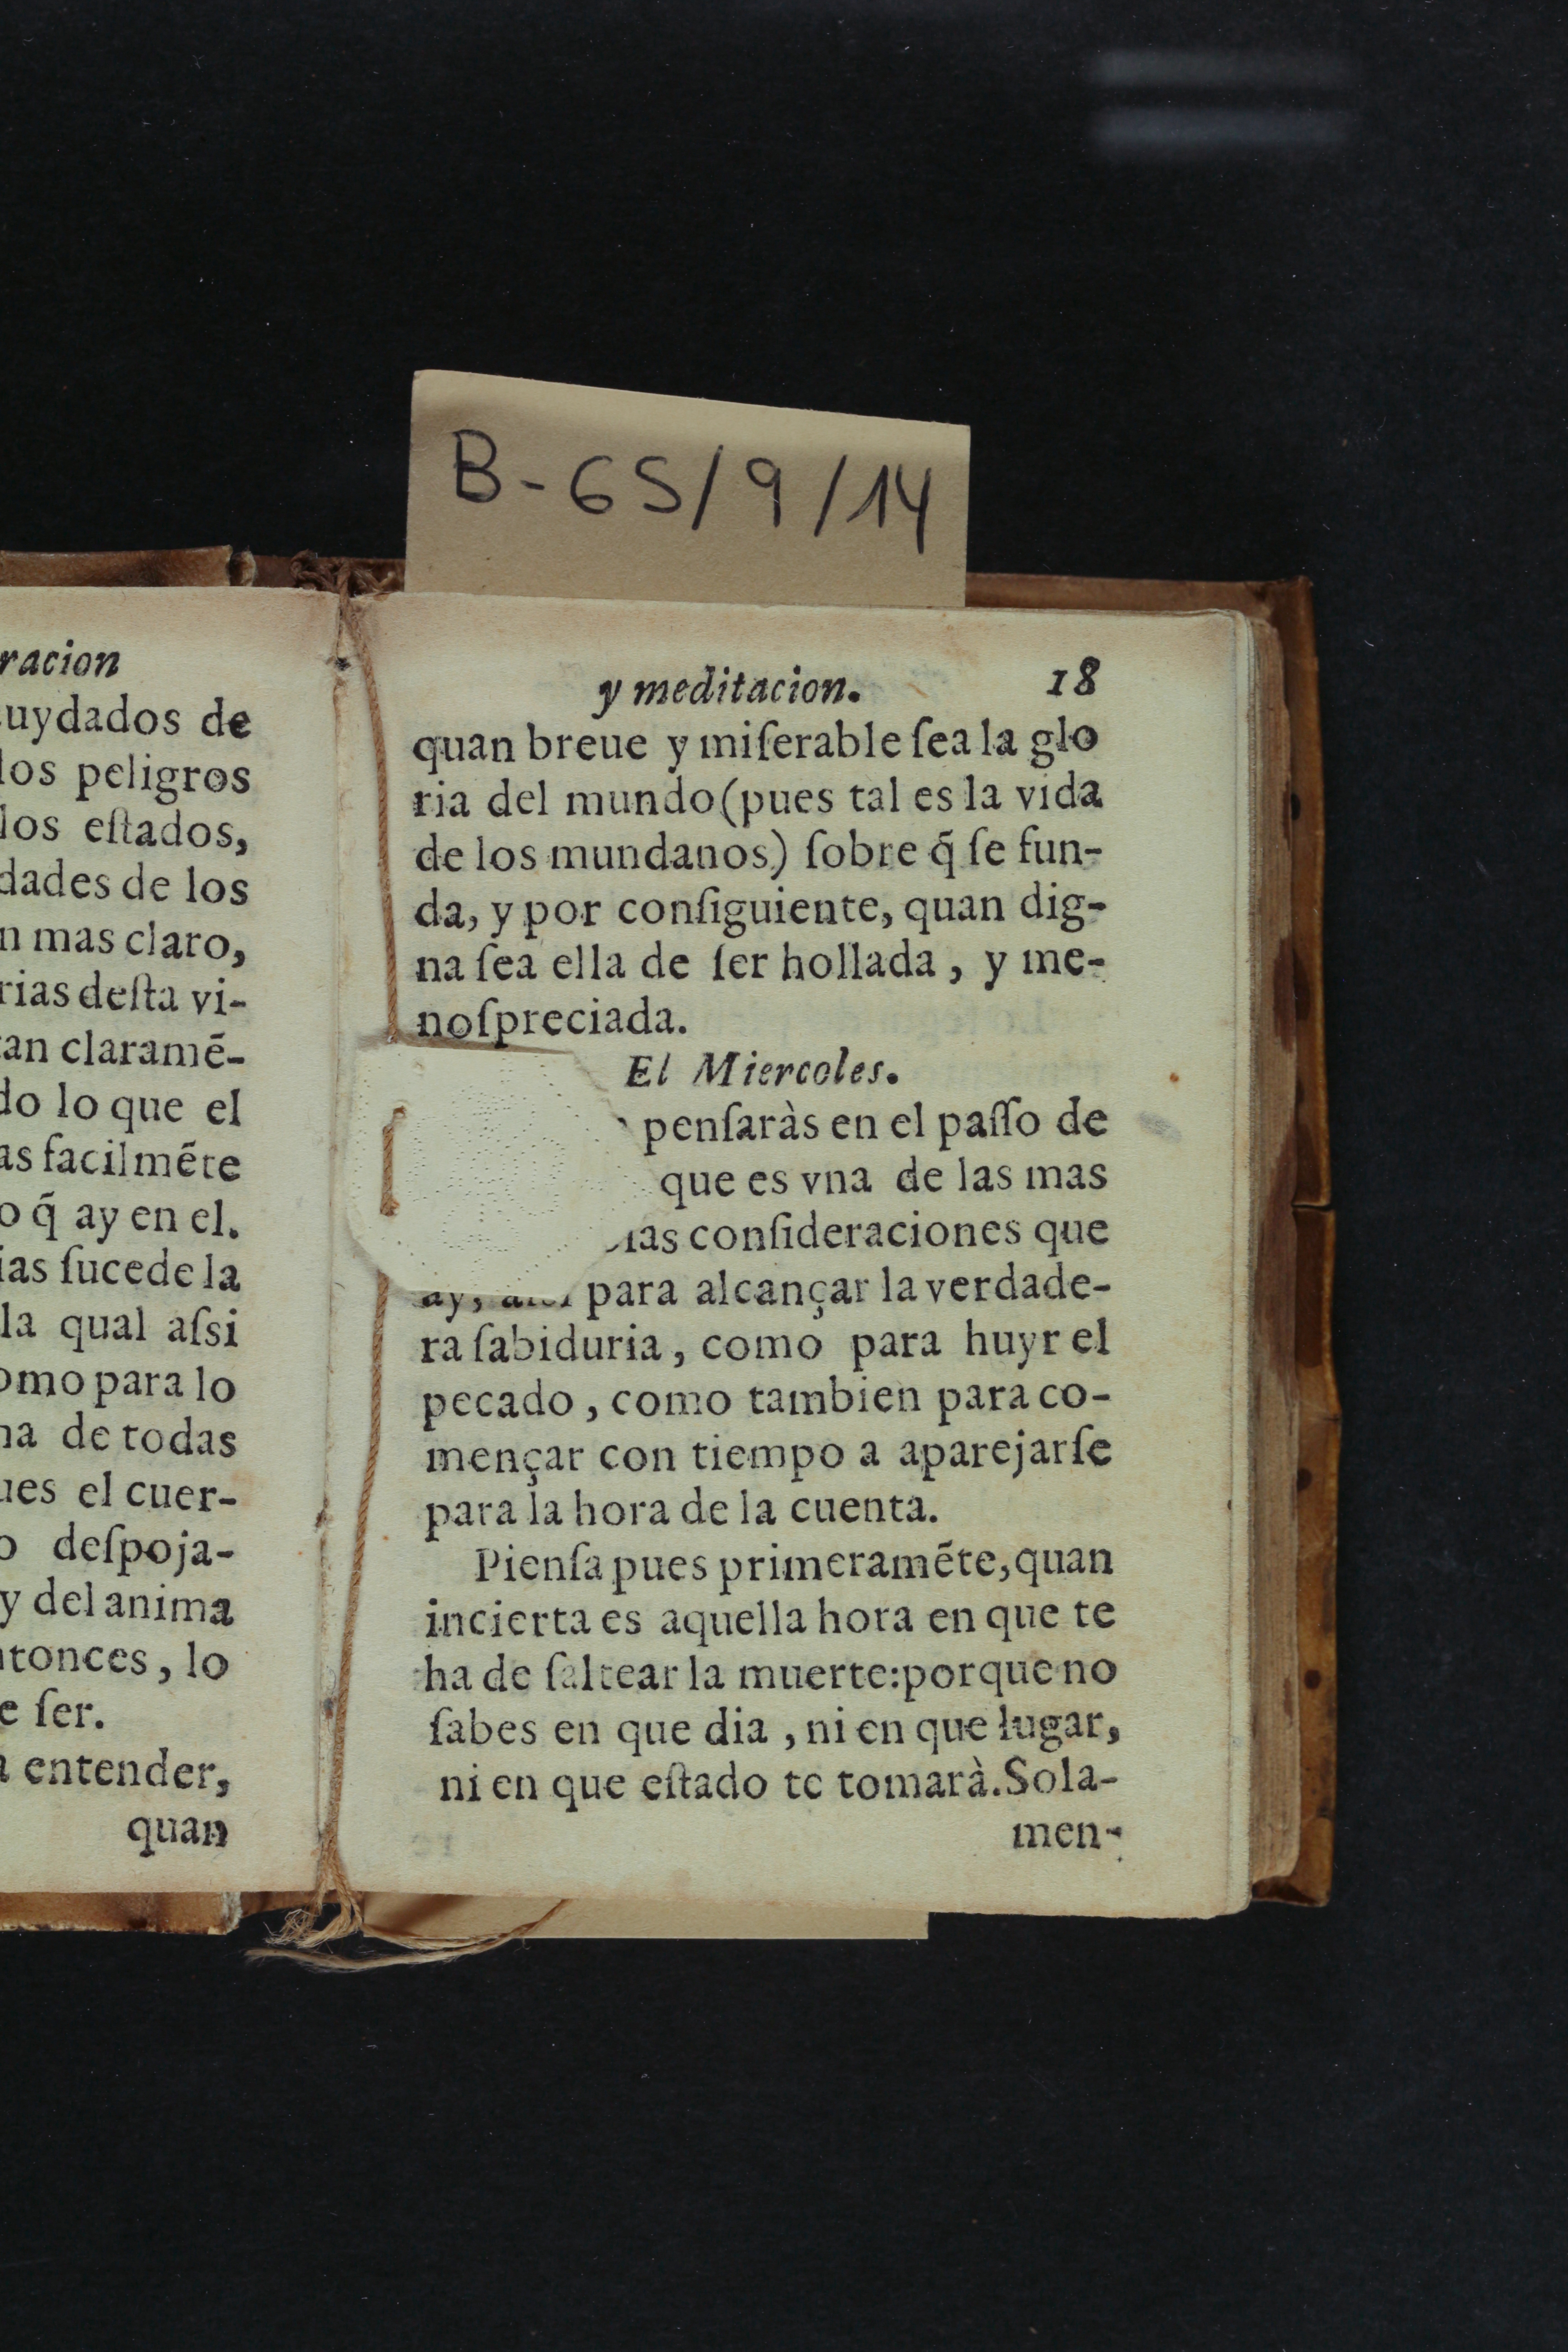 B-65/9/14
racion
uydados de
los peligros
los eſtados,
dades de los
n mas claro,
rias deſta vi-
an claramẽ-
do lo que el
as facilmẽte
o q̃ ay en el.
ias ſucede la
la qual aſsi
omo para lo
na de todas
ues el cuer-
o deſpoja-
y del anima
ntonces, lo
e ſer.
a entender,
quan
y meditacion. 18
quan breue y miſerable ſea la glo
ria del mundo (pues tal es la vida
de los mundanos) ſobre q̃ ſe fun-
da, y por conſiguiente, quan dig-
na ſea ella de ſer hollada, y me-
noſpreciada.
El Miercoles.
penſaràs en el paſſo de
que es vna de las mas
ias conſideraciones que
ay, para alcançar la verdade-
ra ſabiduria, como para huyr el
pecado, como tambien para co-
mençar con tiempo a aparejarſe
para la hora de la cuenta.
Pienſa pues primeramẽte, quan
incierta es aquella hora en que te
ha de ſaltear la muerte: porque no
ſabes en que dia, ni en que lugar,
ni en que eſtado te tomarà. Sola-
men-